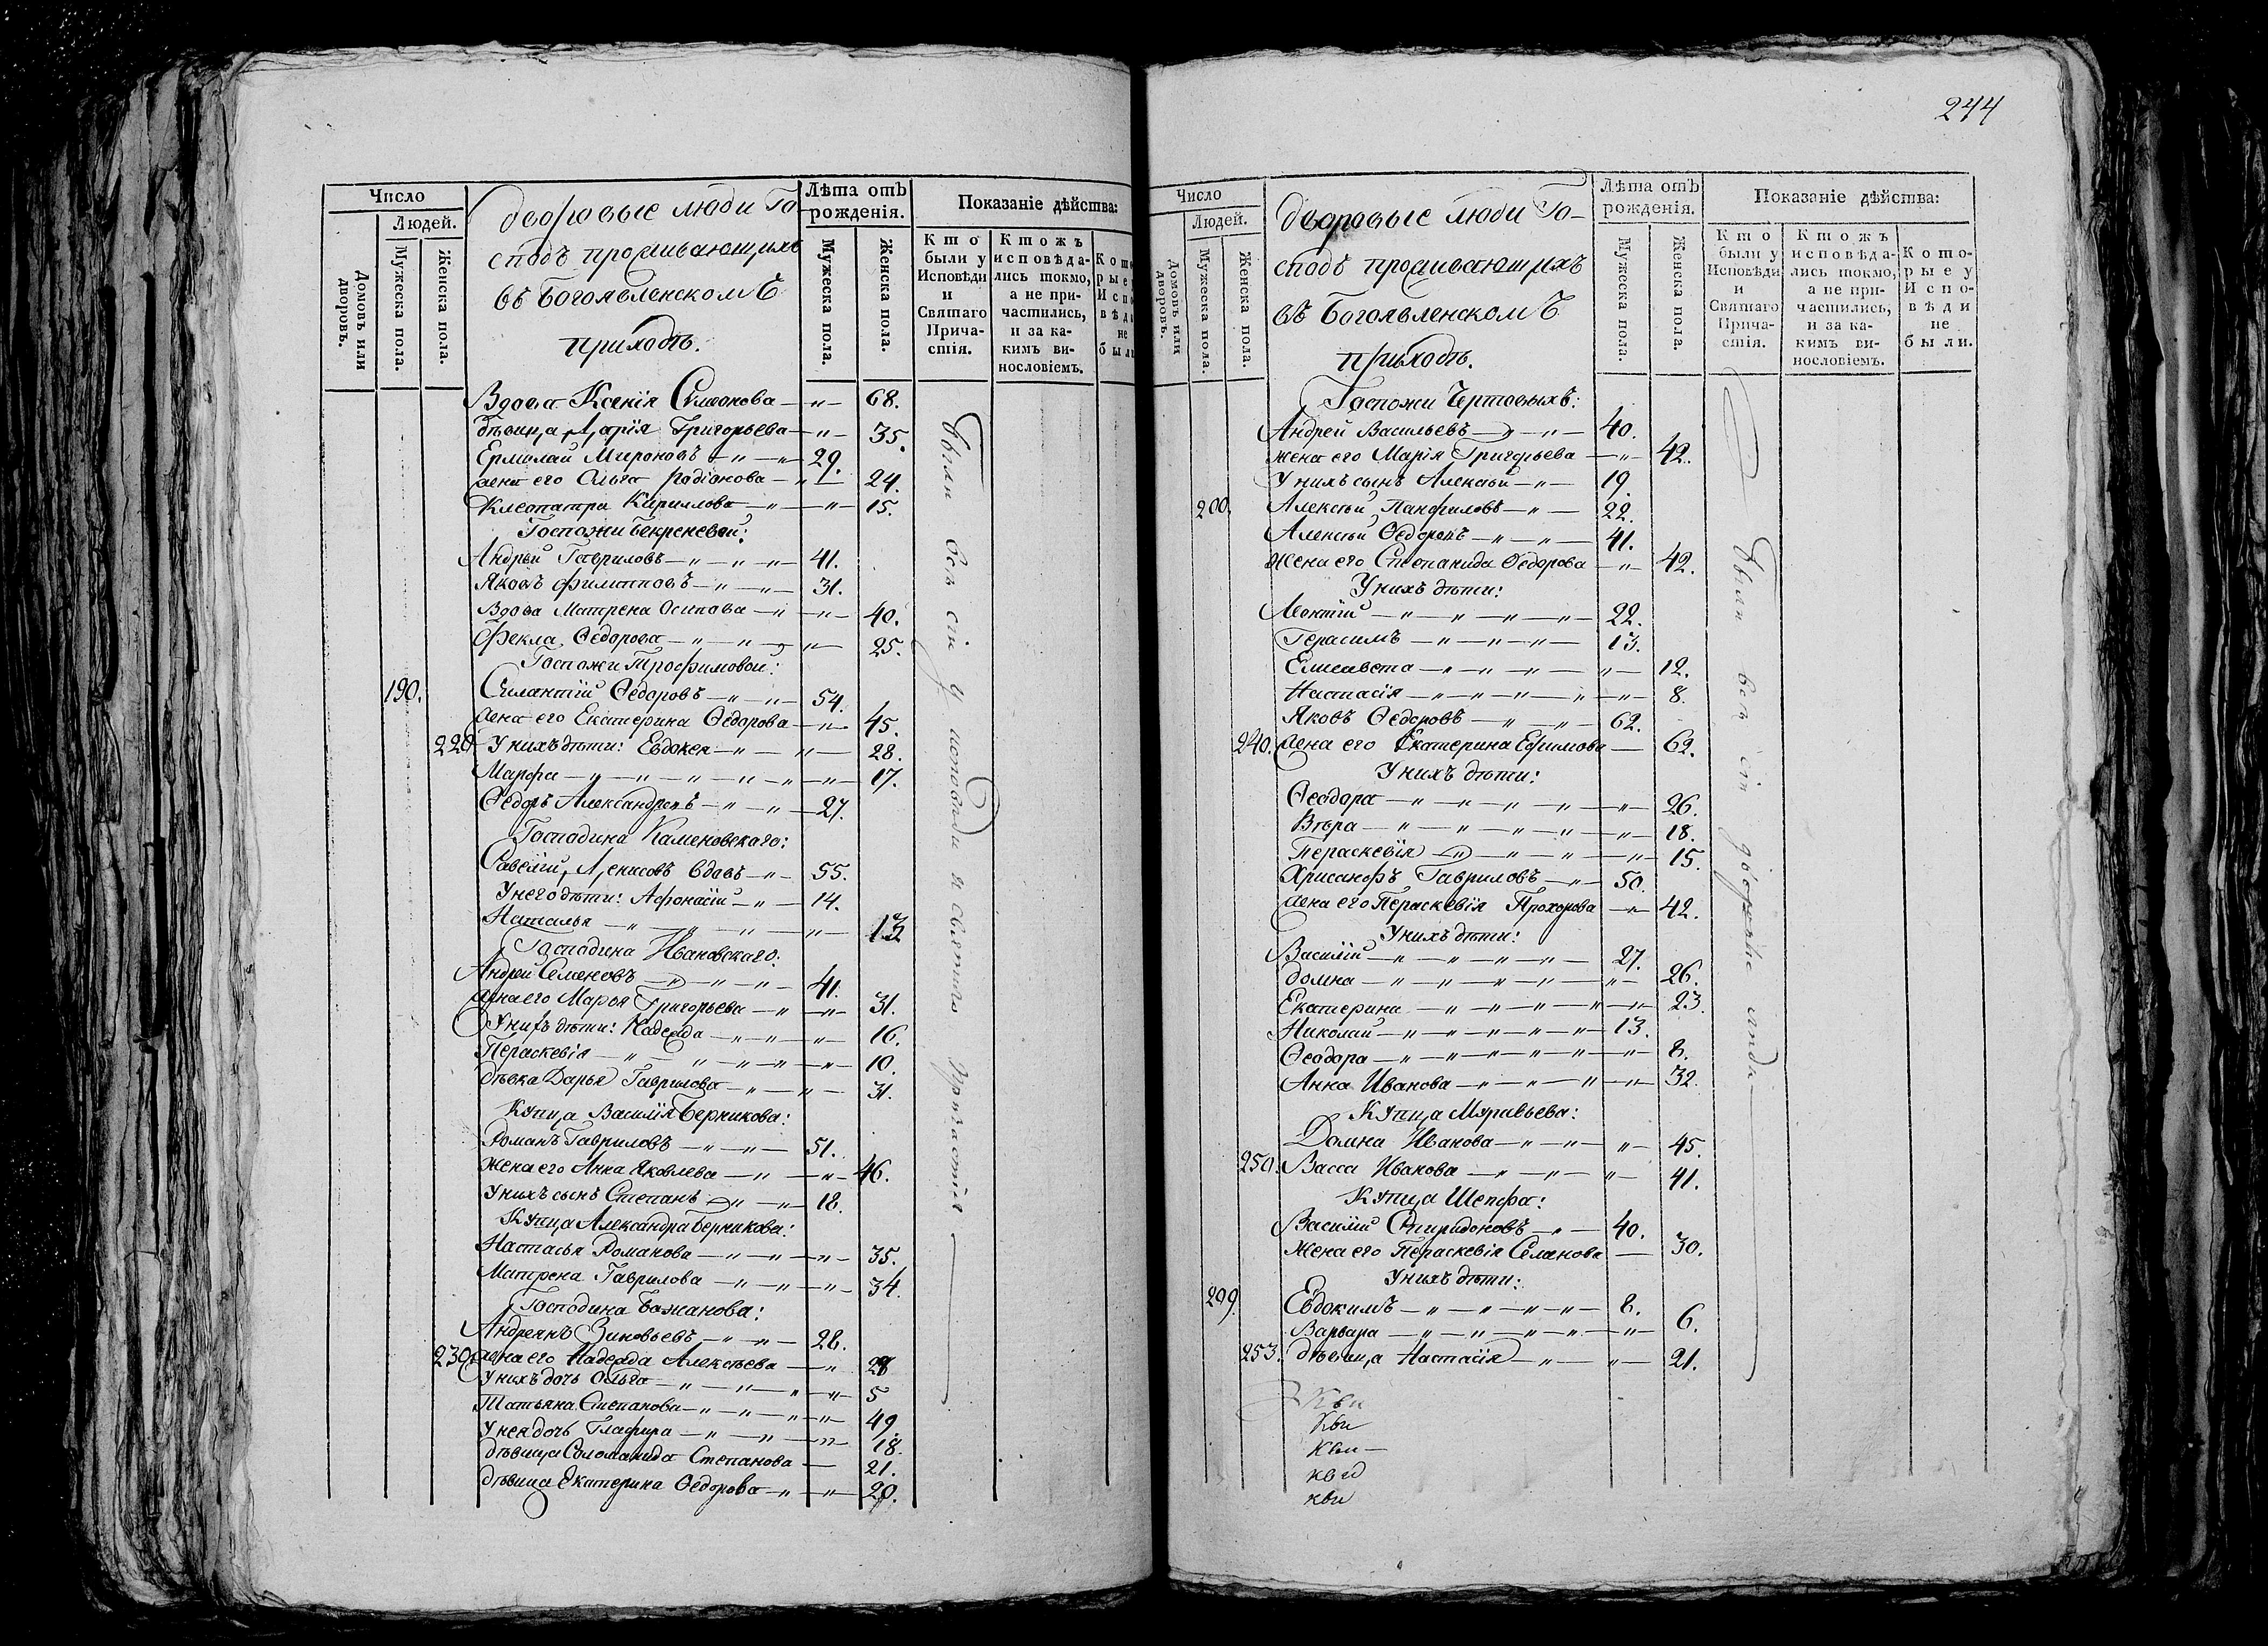 Число
Людей.
Домовъ или дворовъ.
Мужеска пола.
Женска пола.
дворовые люди Го-
сподъ проживающихъ
въ Богоявленскомъ
приходѣ.
Лѣта отъ рожденія.
Мужеска пола.
Женска пола.
Показаніе дѣйства:
Кто были у Исповѣди и Святаго Причастія.
Ктожъ исповѣдались токмо, а не причастились, и за какимъ винословіемъ.
Вдова Ксенія Симеонова — „ — 68.
дѣвица Дарія Григорьева — „ — 35.
Ермолай Мироновъ — „ — „ 29.
жена его Ольга Родіонова — „ — 24.
Клеопатра Кириллова — „ — „ — 15.
Госпожи Бекреневой:
Андрей Гавриловъ — „ — „ — „ — 41.
Яковъ Филипповъ — „ — „ — 31.
Вдова Матрена Осипова — „ — „ — 40.
Фекла Ѳедорова — „ — „ — „ — 25.
Госпожи Трофимовой:
190. Силантій Ѳедоровъ — „ — „ — 54.
жена его Екатерина Ѳедорова — „ — 45.
220 У нихъ дѣти: Евдокея — „ — „ — 28.
Марфа — „ — „ — „ — „ — „ — „ — 17.
Ѳедоръ Александровъ — „ — „ — 27.
Господина Каменовскаго:
Савелій Денисовъ вдовъ — „ — 55.
У него дѣти: Афонасій — „ — 14.
Наталья — „ — „ — „ — „ — 13
Господина Ивановскаго:
Андрей Семеновъ — „ — „ — „ — 41.
жена его Марья Григорьева — „ — „ — 31.
У нихъ дѣти: Надежда — „ — „ — „ — 16.
Пераскевія — „ — „ — „ — „ — „ — 10.
дѣвка Дарья Гаврилова — „ — „ — 31.
Купца Василія Берникова:
Романъ Гавриловъ — „ — „ — 51.
жена его Анна Яковлева — „ — „ — 46.
У нихъ сынъ Степанъ — „ — „ — 18.
Купца Александра Берникова:
Настасья Романова — „ — „ — „ — 35.
Матрена Гаврилова — „ — „ — „ — 34.
Господина Бажанова:
Андреянъ Зиновьевъ — „ — „ — 28.
230 жена его Надежда Алексѣева — „ 28
У нихъ дочь Ольга — „ — „ — „ — „ — 5
Татьяна Степанова — „ — „ — „ — „ — 49.
У нея дочь Глафира — „ — „ — „ — 18.
дѣвица Соломанида Степанова — 21.
дѣвица Екатерина Ѳедорова — „ — „ — 20.
были всѣ сіи у исповѣди и святаго причастія
244
Число
Людей.
Домовъ или дворовъ.
Мужеска пола.
Женска пола.
дворовые люди Го-
сподъ проживающихъ
въ Богоявленскомъ
приходѣ.
Лѣта отъ рожденія.
Мужеска пола.
Женска пола.
Показаніе дѣйства:
Кто были у Исповѣди и Святаго Причастія.
Ктожъ исповѣдались токмо, а не причастились, и за какимъ винословіемъ.
Которые у Исповѣди не были.
Госпожи Чертовыхъ:
Андрей Васильевъ — „ — „ — 40.
жена его Марія Григорьева — „ — 42.
У нихъ сынъ Алексѣй — „ — 19.
200. Алексѣй Панфиловъ — „ — 22.
Алексѣй Ѳедоровъ — „ — „ — 41.
Жена его Степанида Ѳедорова — „ — 42.
У нихъ дѣти:
Леонтій — „ — „ — „ — „ — 22.
Герасимъ — „ — „ — „ — 13.
Елисавета — „ — „ — „ — „ — 12.
Настасія — „ — „ — „ — „ — „ — 8.
Яковъ Ѳедоровъ — „ — „ — 62.
240. жена его Екатерина Ефимова — 62.
У нихъ дѣти:
Ѳеодора — „ — „ — „ — „ — „ — 26.
Вѣра — „ — „ — „ — „ — „ — 18.
Пераскевія — „ — „ — „ — „ — 15.
Хрисанфъ Гавриловъ — „ — 50.
жена его Пераскевія Прохорова — „ — 42.
У нихъ дѣти:
Василій — „ — „ — „ — „ — 27.
Домна — „ — „ — „ — „ — „ — 26.
Екатерина — „ — „ — „ — „ — „ — 23.
Николай — „ — „ — „ — „ — „ — 13.
Ѳеодора — „ — „ — „ — „ — „ — „ — 8.
Анна Иванова — „ — „ — „ — „ — 32.
Купца Муравьева:
Домна Иванова — „ — „ — „ — 45.
250. Васса Иванова — „ — „ — „ — 41.
Купца Шепфа:
Василій Спиридоновъ — „ — 40.
Жена его Пераскевія Семенова — 30.
У нихъ дѣти:
209. Евдокимъ — „ — „ — „ — „ — 8.
Варвара — „ — „ — „ — „ — „ — 6.
253. дѣвица Настасія — „ — „ — 21.
были всѣ сіи дворовые люди